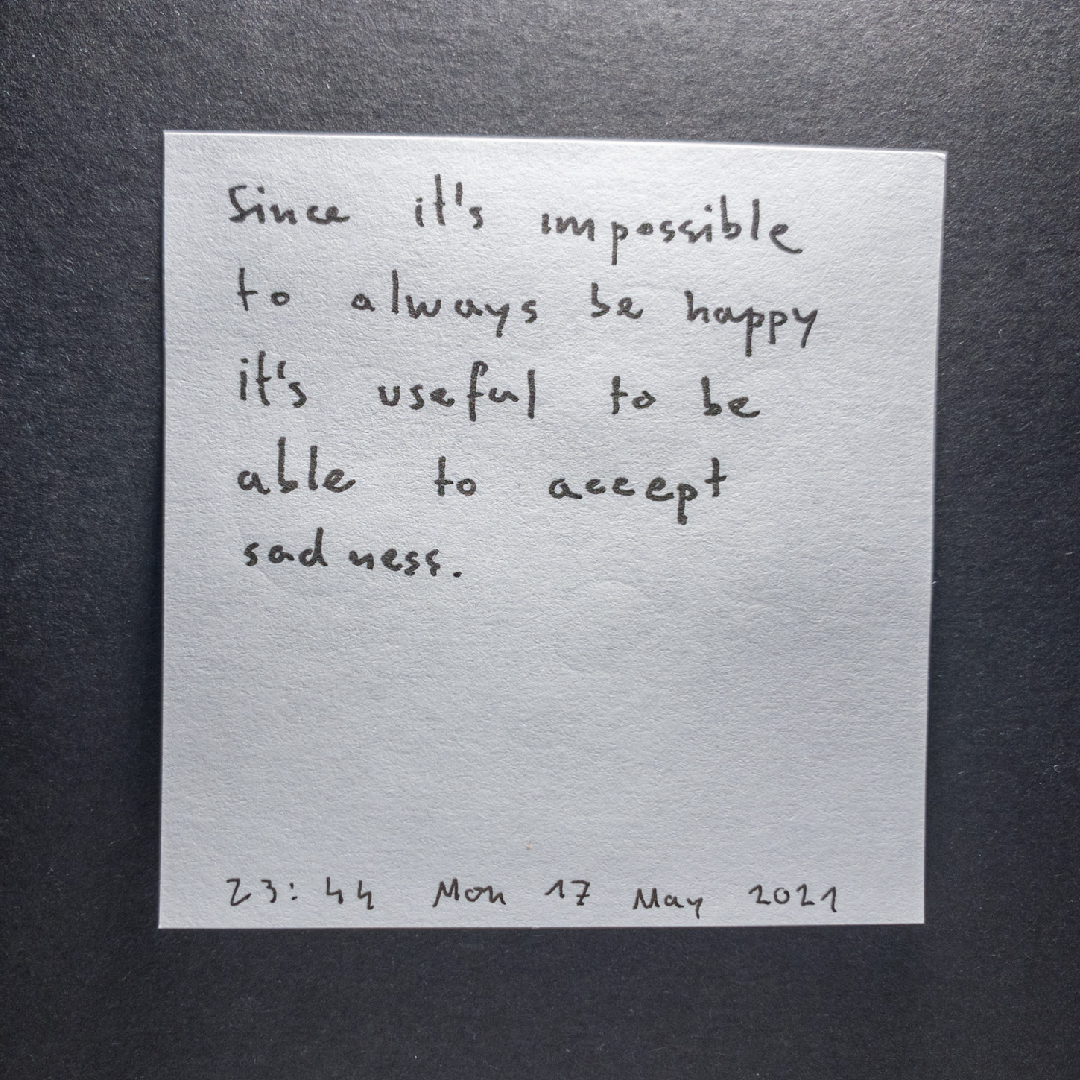 Since it's impossible
to always be happy
it's useful to be
able to accept
sadness.
23:44 Mon 17 May 2021